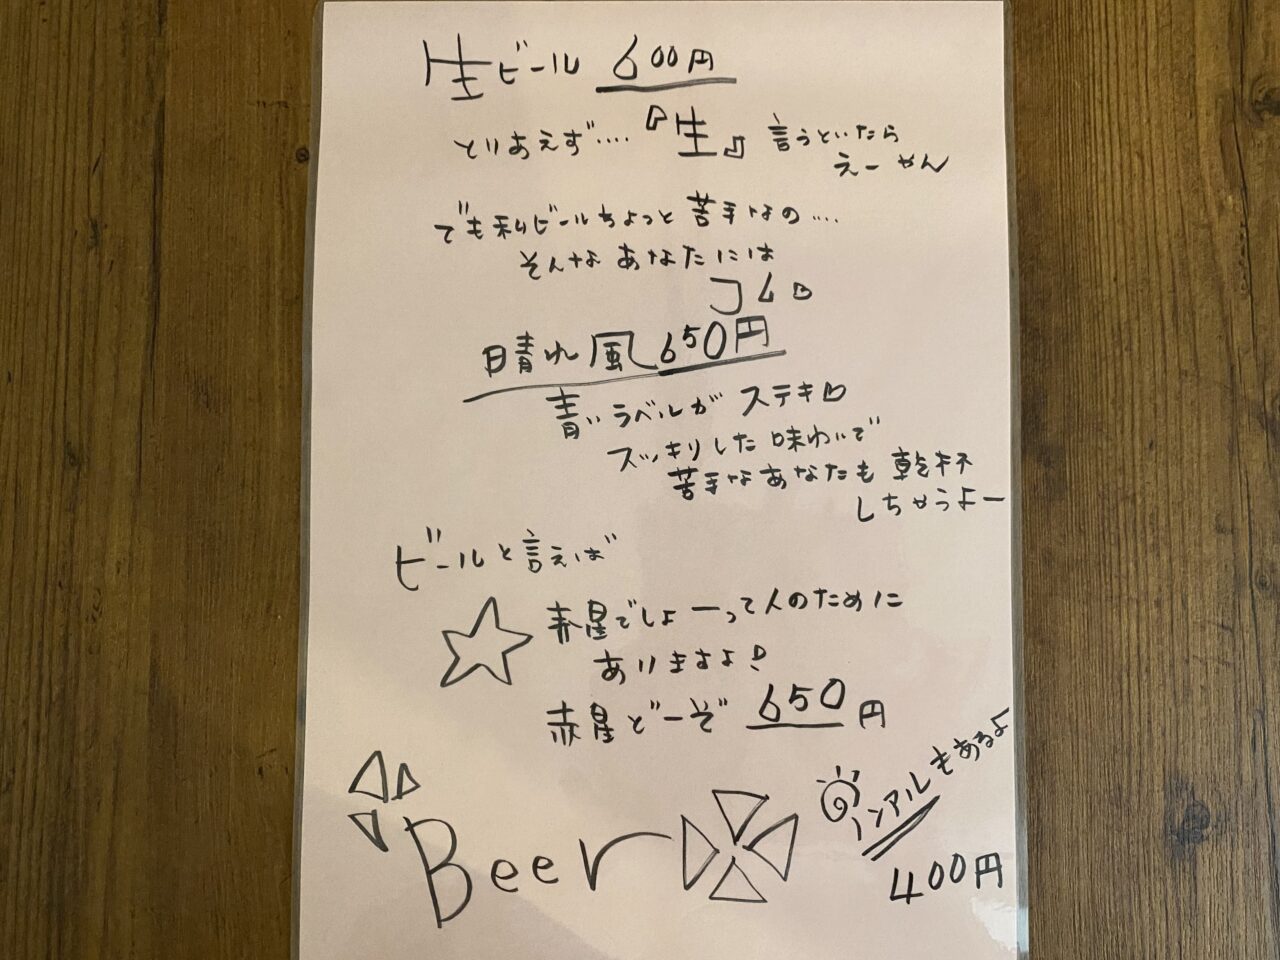 生ビール 600円
とりあえず‥‥『生』言うといたら
えーやん
でも私ビールちょっと苦手なの‥‥
そんなあなたには
コレ
晴れ風 650円
青いラベルがステキ
スッキリした味わいで
苦手なあなたも乾杯
しちゃうよー
ビールと言えば
赤星でしょーって人のために
ありますよ!
赤星どーぞ 650円
Beer
ノンアルもあるよ
400円